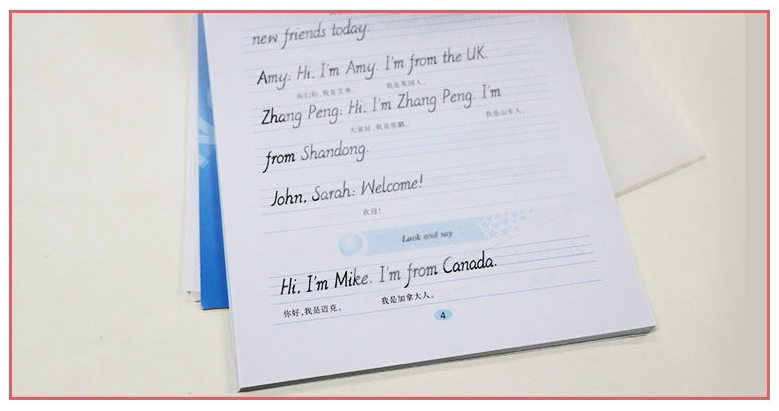 new friends today.
Amy: Hi, I'm Amy. I'm from the UK.
你们好，我是艾米。 我是英国人。
Zhang Peng: Hi, I'm Zhang Peng. I'm
大家好，我是张鹏。 我是山东人。
from Shandong.
John, Sarah: Welcome!
欢迎！
Look and say
Hi, I'm Mike. I'm from Canada.
你好，我是迈克。 我是加拿大人。
4